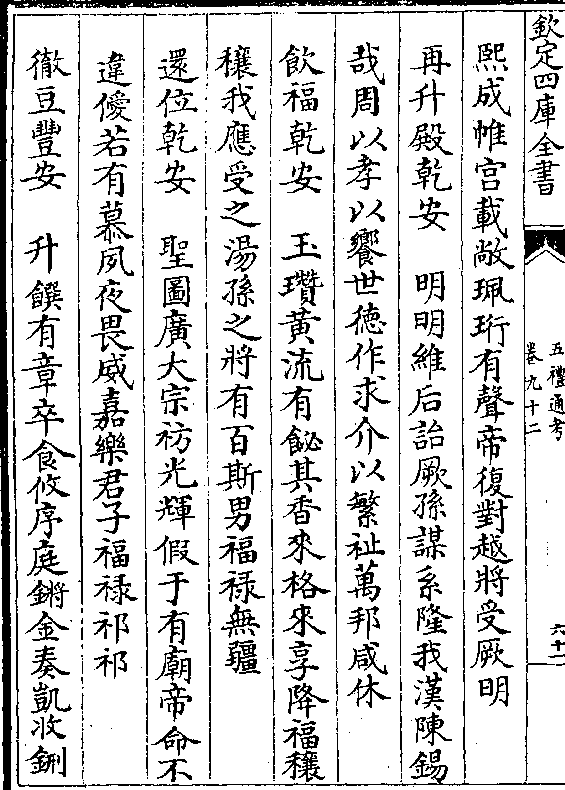 欽定四庫全書
五禮通考
卷九十二
六十一
熙成帷宫載敞珮珩有聲帝復對越將受厥明
再升殿乾安 明明維后詒厥孫謀系隆我漢陳錫
哉周以孝以饗世德作求介以繁祉萬邦咸休
飲福乾安 玉瓚黄流有飶其香來格來享降福穰
穰我應受之湯孫之將有百斯男福禄無疆
還位乾安 聖圖廣大宗祊光輝假于有廟帝命不
違僾若有慕夙夜畏威嘉樂君子福禄祁祁
徹豆豐安 升饌有章卒食攸序庭鏘金奏凱收鉶